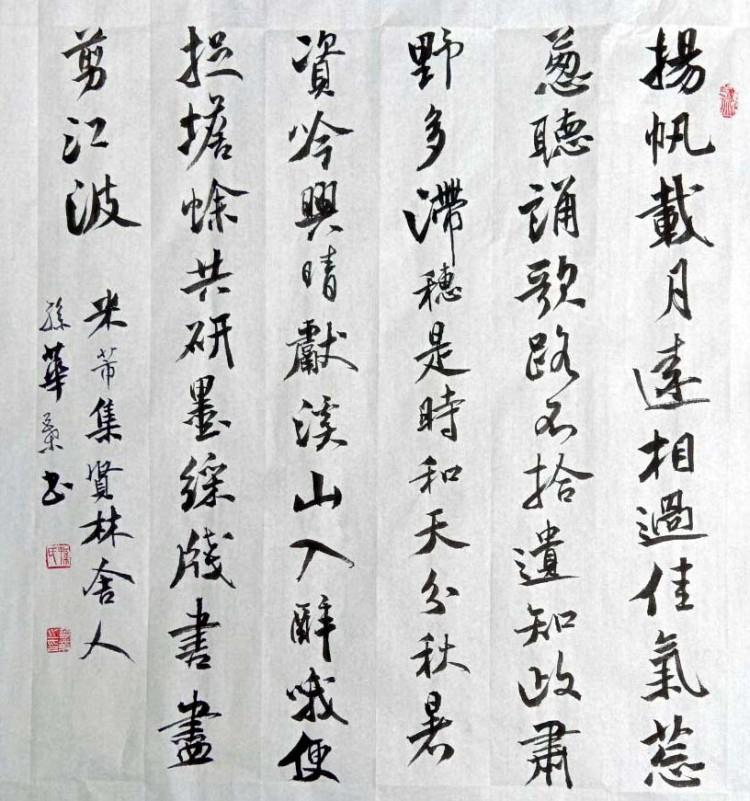 揚帆載月遠相過佳氣葱
葱聽誦歌路不拾遺知政肅
野多滯穗是時和天分秋暑
資吟興晴獻溪山入醉哦便
捉蟾蜍共研墨綵牋書盡
剪江波
米芾集賢林舍人
孫華书